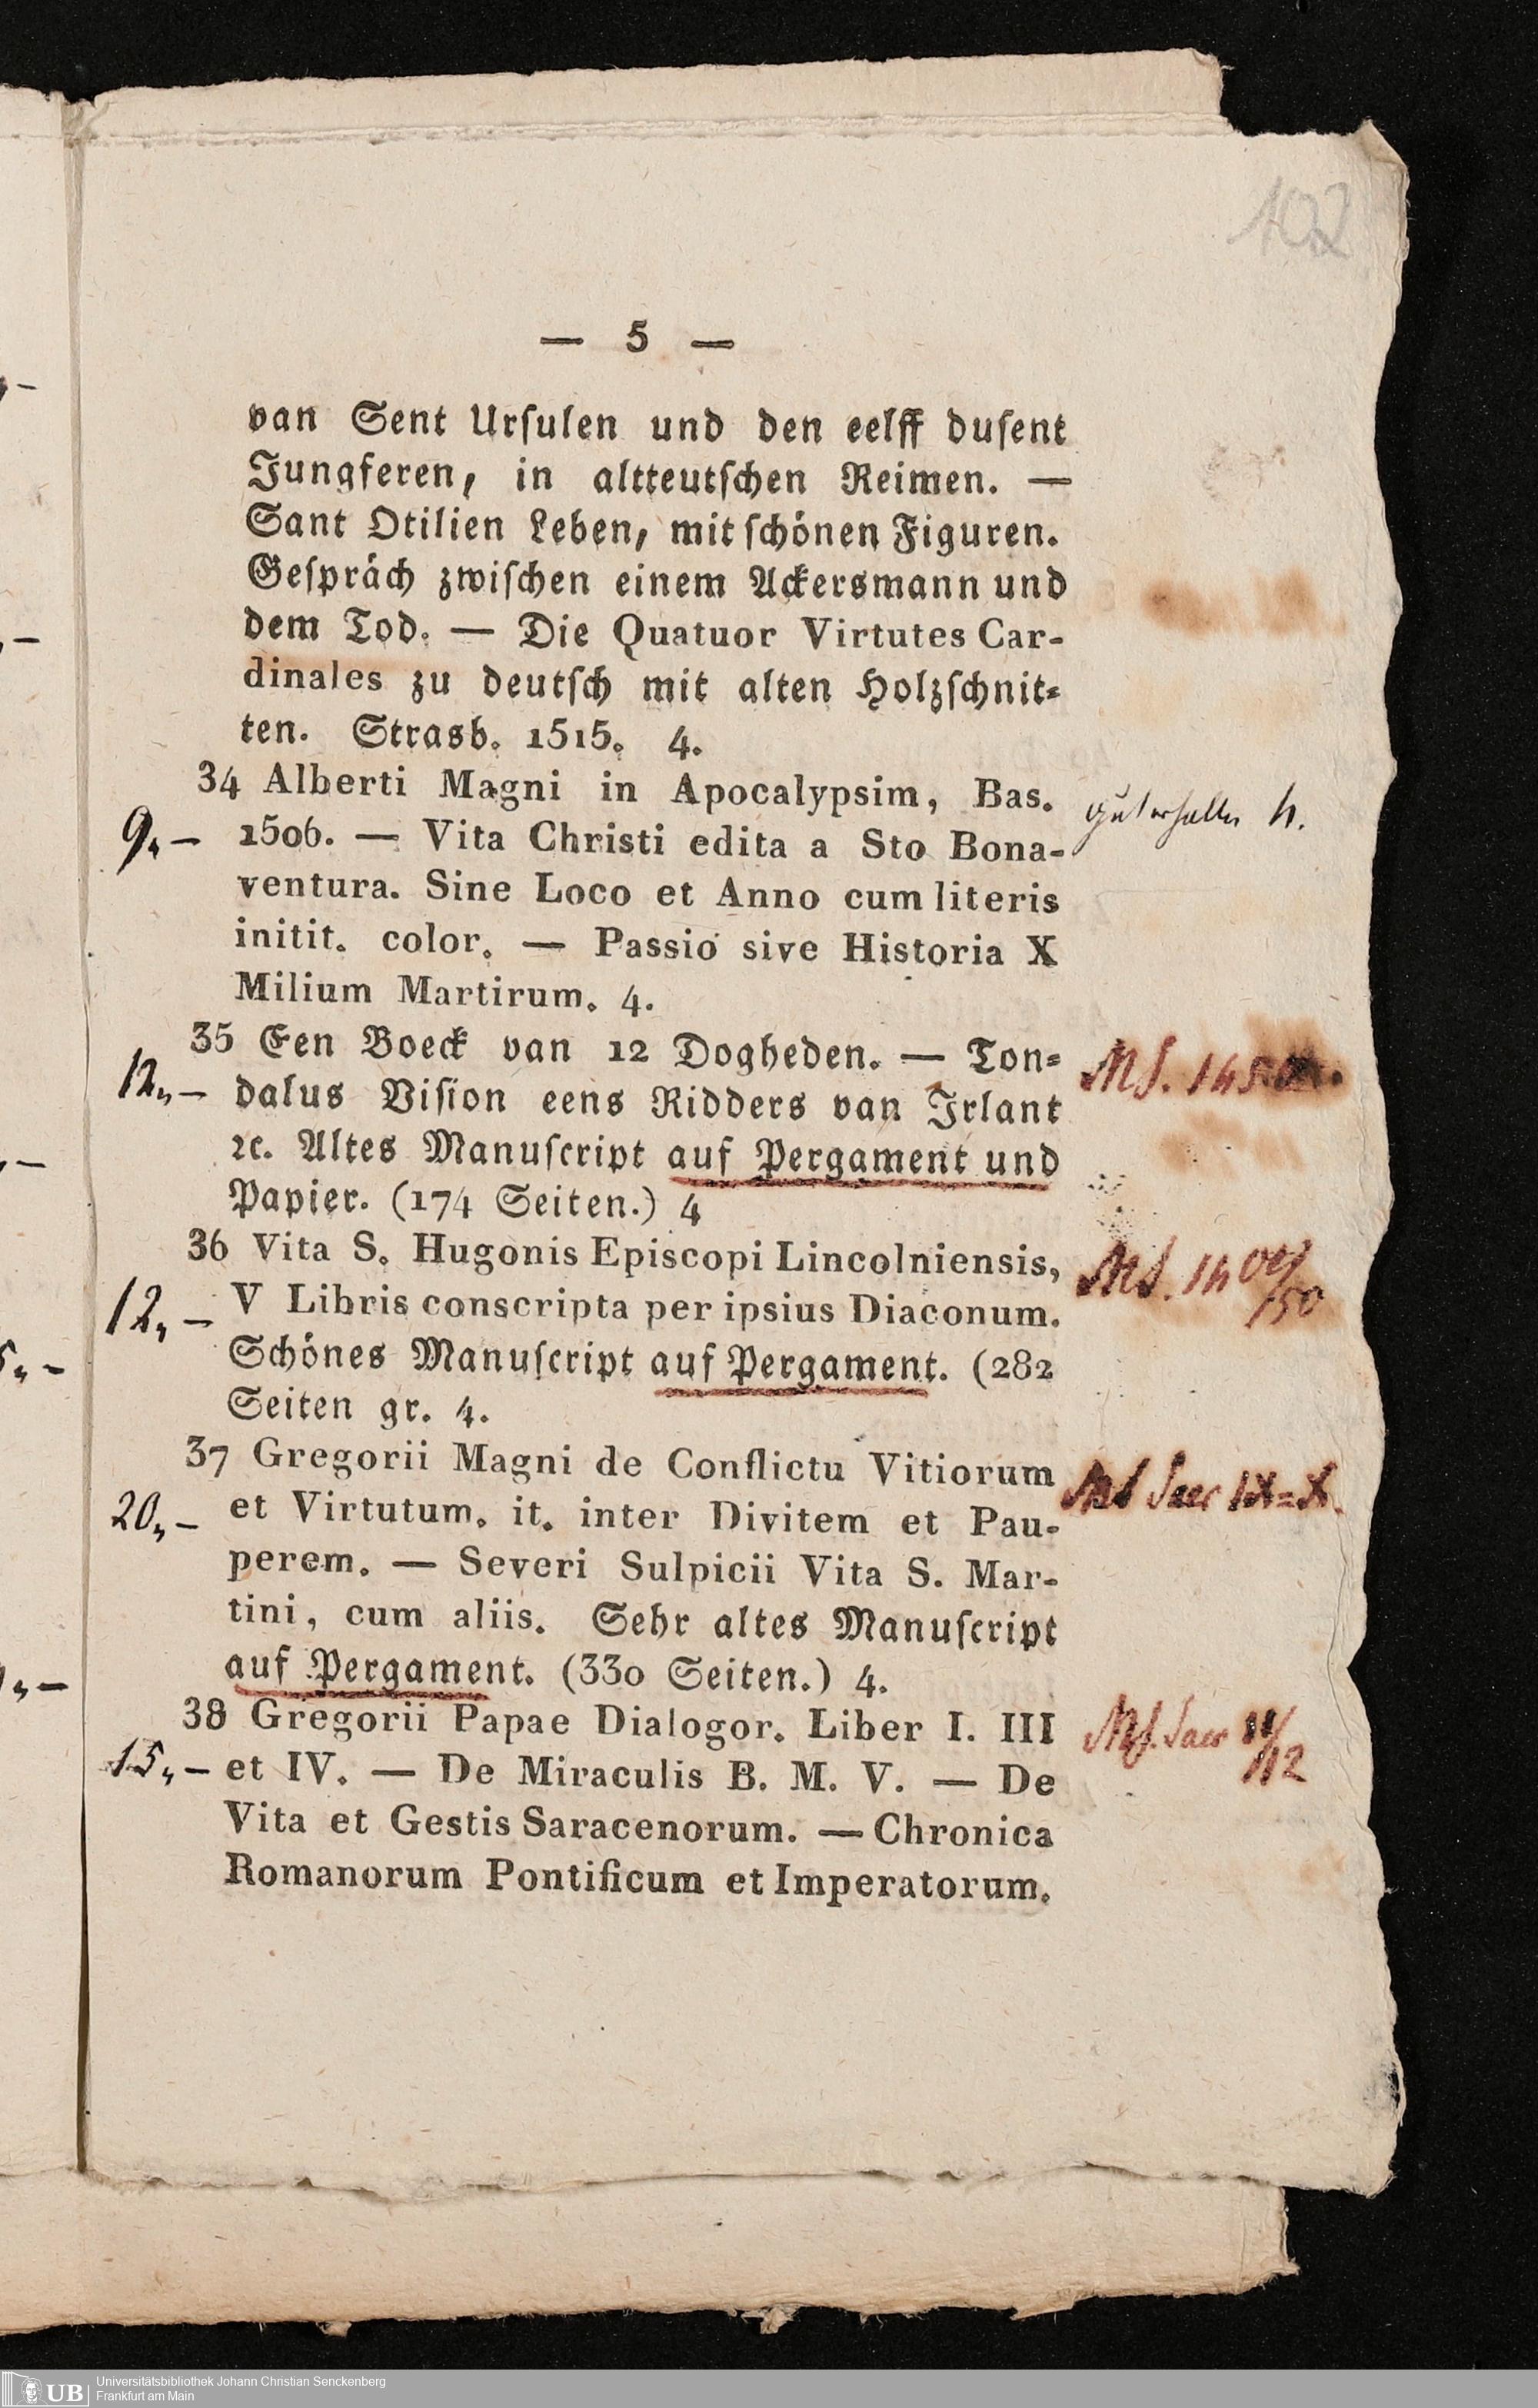 102
— 5 —
van Sent Urſulen und den eelff duſent
Jungferen, in altteutſchen Reimen. —
Sant Otilien Leben, mit ſchönen Figuren.
Geſpräch zwiſchen einem Ackersmann und
dem Tod. — Die Quatuor Virtutes Car-
dinales zu deutſch mit alten Holzſchnit-
ten. Strasb. 1515. 4.
34 Alberti Magni in Apocalypsim, Bas.
9,– 1506. — Vita Christi edita a Sto Bona-
ventura. Sine Loco et Anno cum literis
initit. color. — Passio sive Historia X
Milium Martirum. 4.
35 Een Boeck van 12 Dogheden. — Ton- MS.
12,,– dalus Viſion eens Ridders van Irlant
ꝛc. Altes Manuſcript auf Pergament und
Papier. (174 Seiten.) 4
36 Vita S. Hugonis Episcopi Lincolniensis, MS. 1400/50
12,,– V Libris conscripta per ipsius Diaconum.
Schönes Manuſcript auf Pergament. (282
Seiten gr. 4.
37 Gregorii Magni de Conflictu Vitiorum MS Saec IX=X.
20,,– et Virtutum. it. inter Divitem et Pau-
perem. — Severi Sulpicii Vita S. Mar-
tini, cum aliis. Sehr altes Manuſcript
auf Pergament. (330 Seiten.) 4.
38 Gregorii Papae Dialogor. Liber I. III MS. Saec 11/12
15,,– et IV. — De Miraculis B. M. V. — De
Vita et Gestis Saracenorum. — Chronica
Romanorum Pontificum et Imperatorum.
UB Universitätsbibliothek Johann Christian Senckenberg
Frankfurt am Main